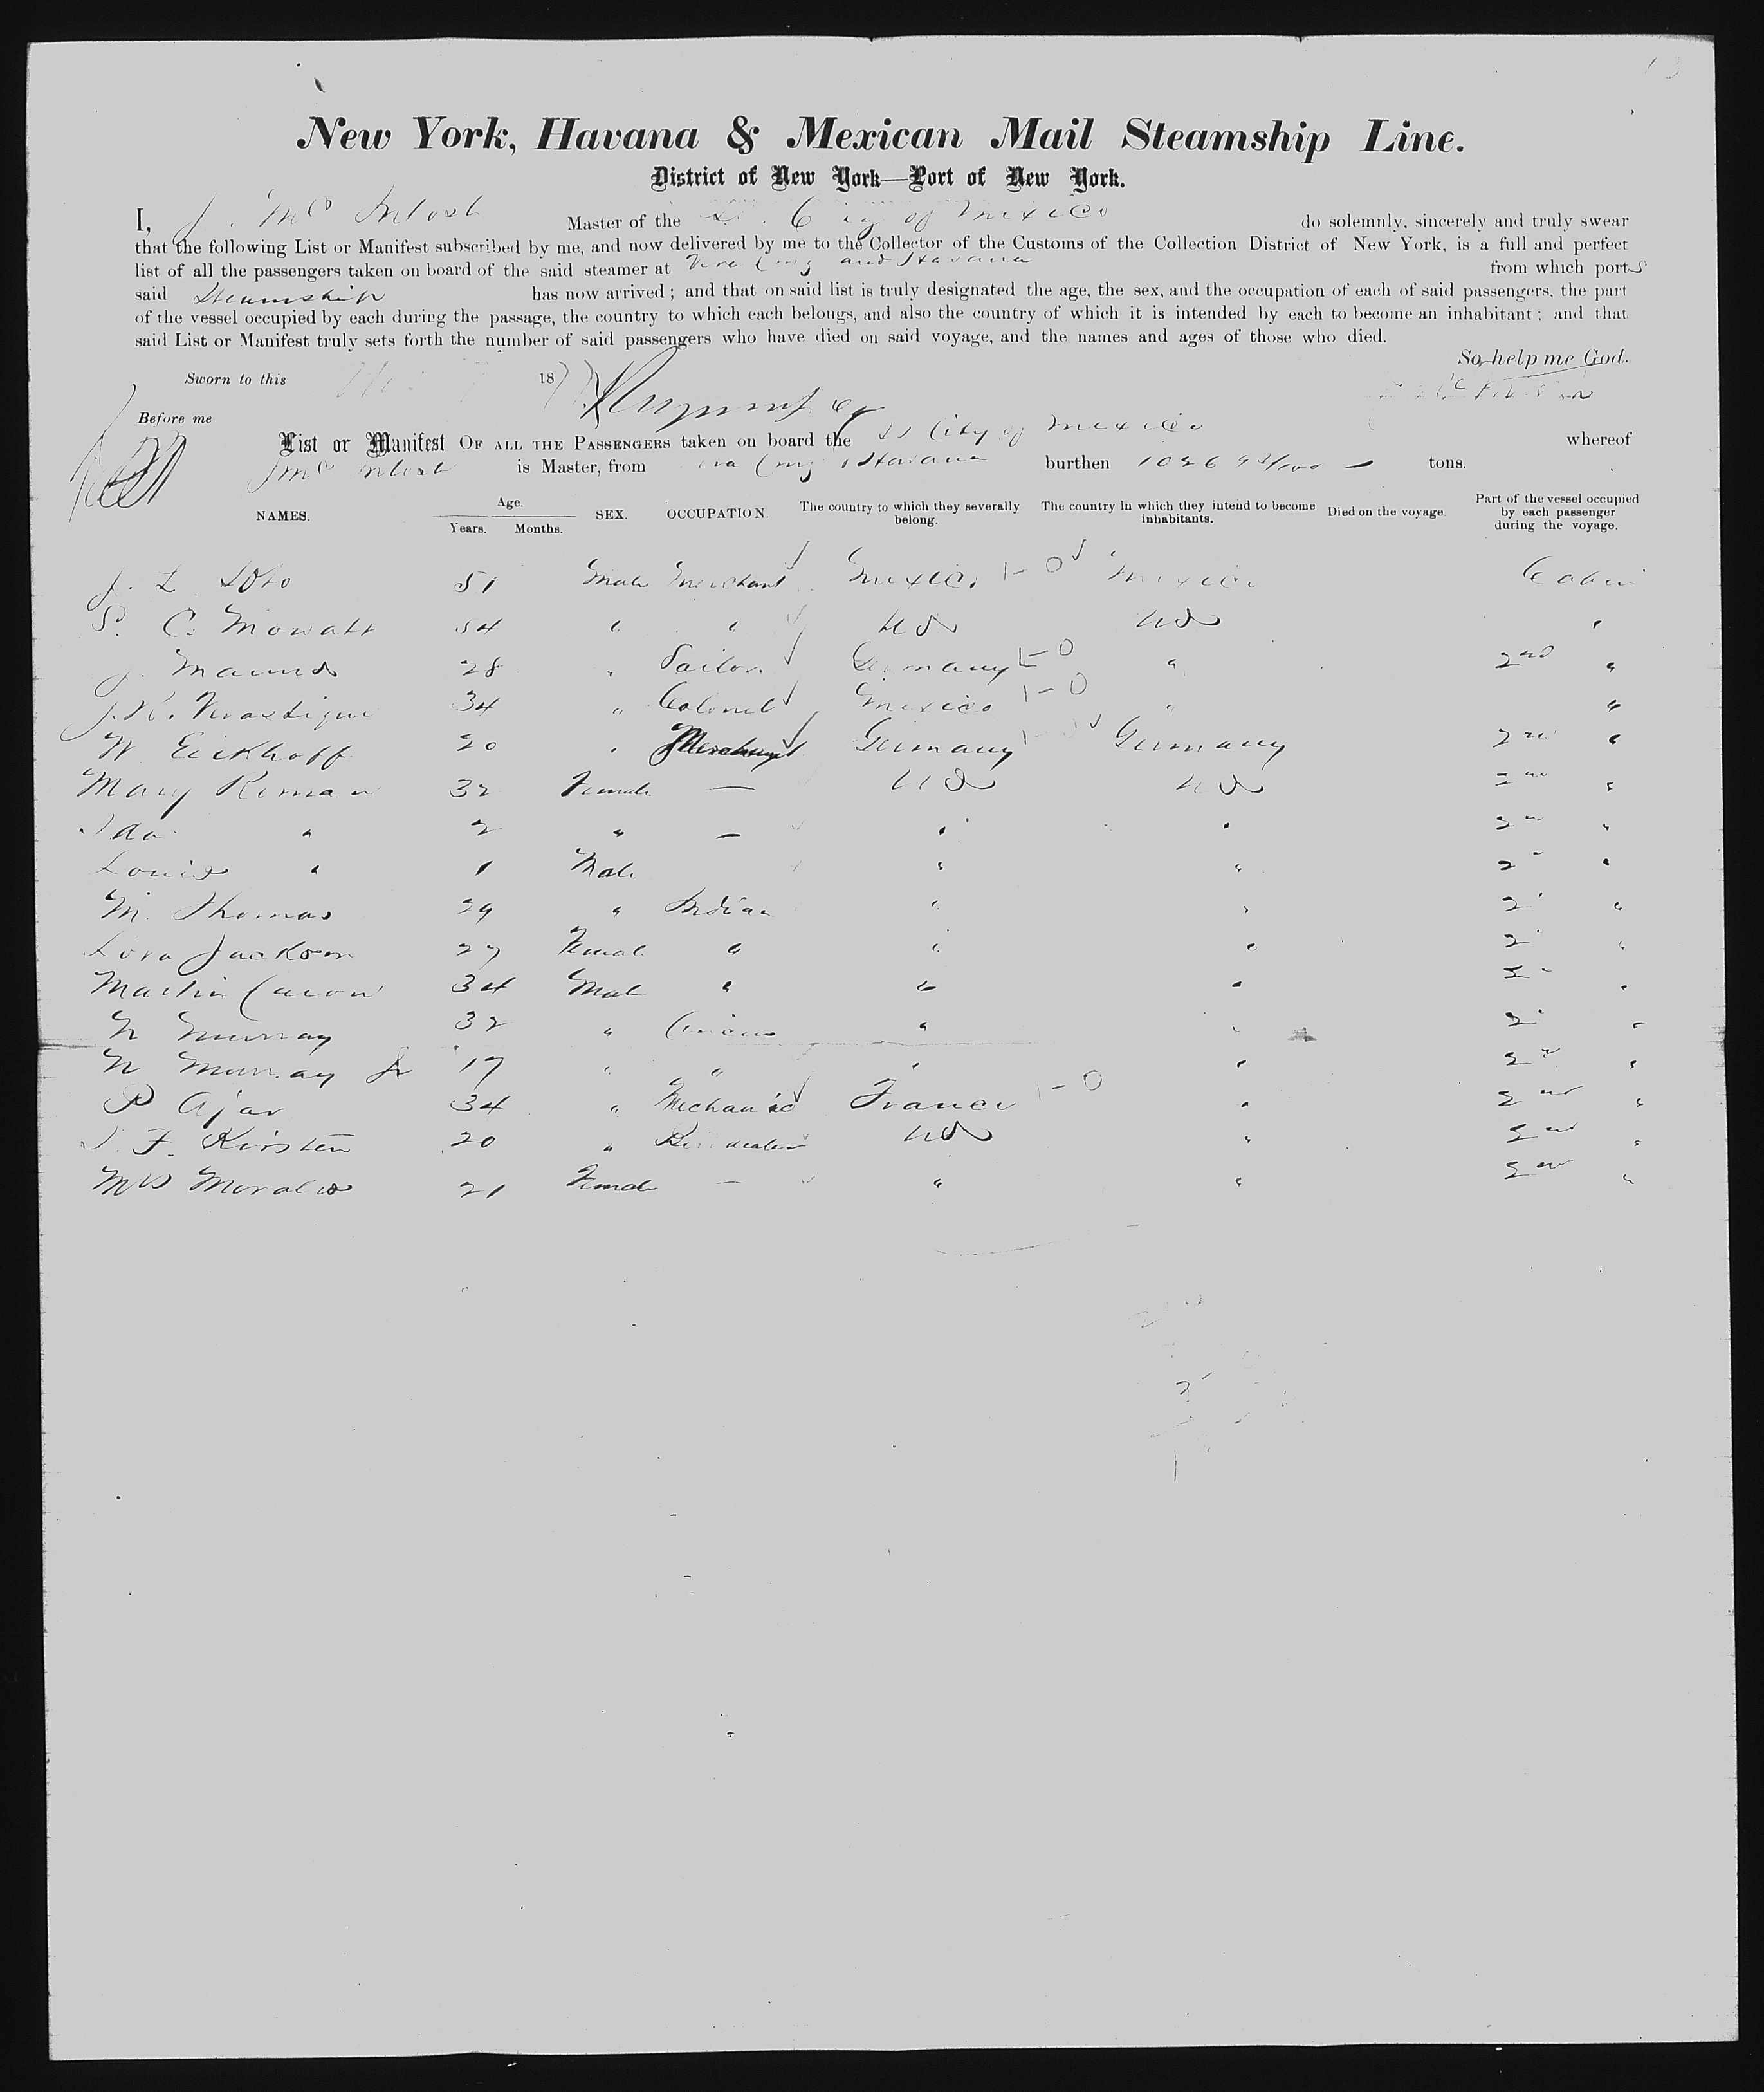 New York, Havana & Mexican Mail Steamship Line.
District of New York—Port of New York.
I, J. McIntosh Master of the SS. City of Mexico do solemnly, sincerely and truly swear
that the following List or Manifest subscribed by me, and now delivered by me to the Collector of the Customs of the Collection District of New York, is a full and perfect
list of all the passengers taken on board of the said steamer at Vera Cruz and Havana from which ports
said Steamship has now arrived; and that on said list is truly designated the age, the sex, and the occupation of each of said passengers, the part
of the vessel occupied by each during the passage, the country to which each belongs, and also the country of which it is intended by each to become an inhabitant; and that
said List or Manifest truly sets forth the number of said passengers who have died on said voyage, and the names and ages of those who died.
So help me God.
Sworn to this 187
Before me
List or Manifest OF ALL THE PASSENGERS taken on board the SS City of Mexico whereof
J McIntosh is Master, from Vera Cruz & Havana burthen 1026 tons.
NAMES. Age. Years. Months. SEX. OCCUPATION. The country to which they severally belong. The country in which they intend to become inhabitants. Died on the voyage. Part of the vessel occupied by each passenger during the voyage.
J. L. Soto 51 Male Merchant Mexico 1-0 Mexico Cabin
P. C. Mowatt 54 " " US US "
J. Mauns 28 " Sailor Germany 1-0 " 2nd "
34 " Colonel Mexico 1-0 " "
W Eickhoff 20 " Merchant Germany Germany 2nd "
Mary Roman 32 Female — US US 2nd "
Ida " 2 " — " " 2nd "
Louis " 1 Male " " 2 "
M. Thomas 29 " Indian " " 2 "
Lora Jackson 27 Female " " " 2 "
Martin 34 Male " " " 2 "
N Murray 32 " Circus " " 2 "
N Murray Jr 17 " " " " 2nd "
P Ajar 34 " Mechanic France 1-0 " 2nd "
F. Kirsten 20 " US " 2nd "
Mrs Morales 21 Female — " " 2nd "